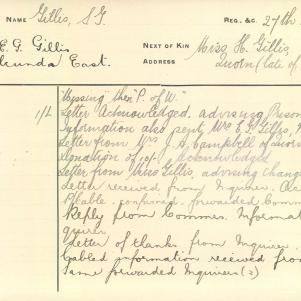 NAME Gillis, S.G. REG. &c. 27th
E. G. Gillis NEXT OF KIN Miss H. Gillis,
Eurunda East. ADDRESS Quorn (late of
1/L "Missing" then "P. of W."
Letter Acknowledged. advising Prison
Information also sent Mrs E. G. Gillis,
Letter from Mrs J. A. Campbell of Quorn
Donation of 10/- Acknowledged
Letter from Miss Gillis, advising Chang
Letter received from Inquirer.
Cable. confirmed. forwarded Comm
Reply from Commrs. Informat
quirer
Letter of thanks from Inquirer.
Cabled information received from
Same forwarded Inquirers (2)